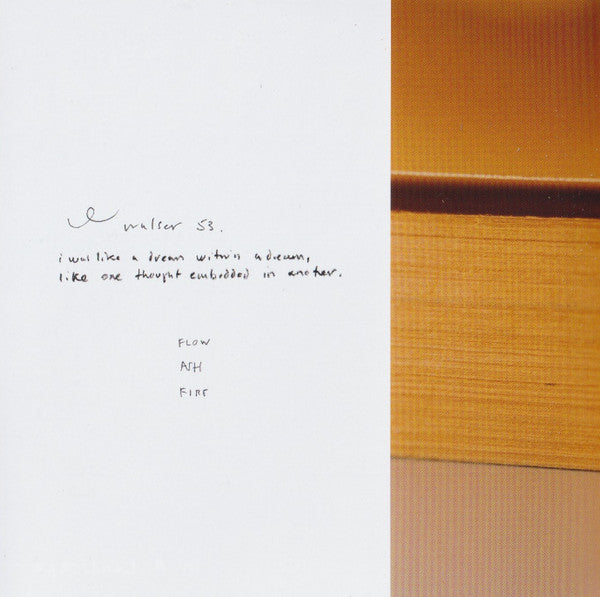 walser 53.
i was like a dream within a dream,
like one thought embedded in another.
FLOW
ASH
FIRE